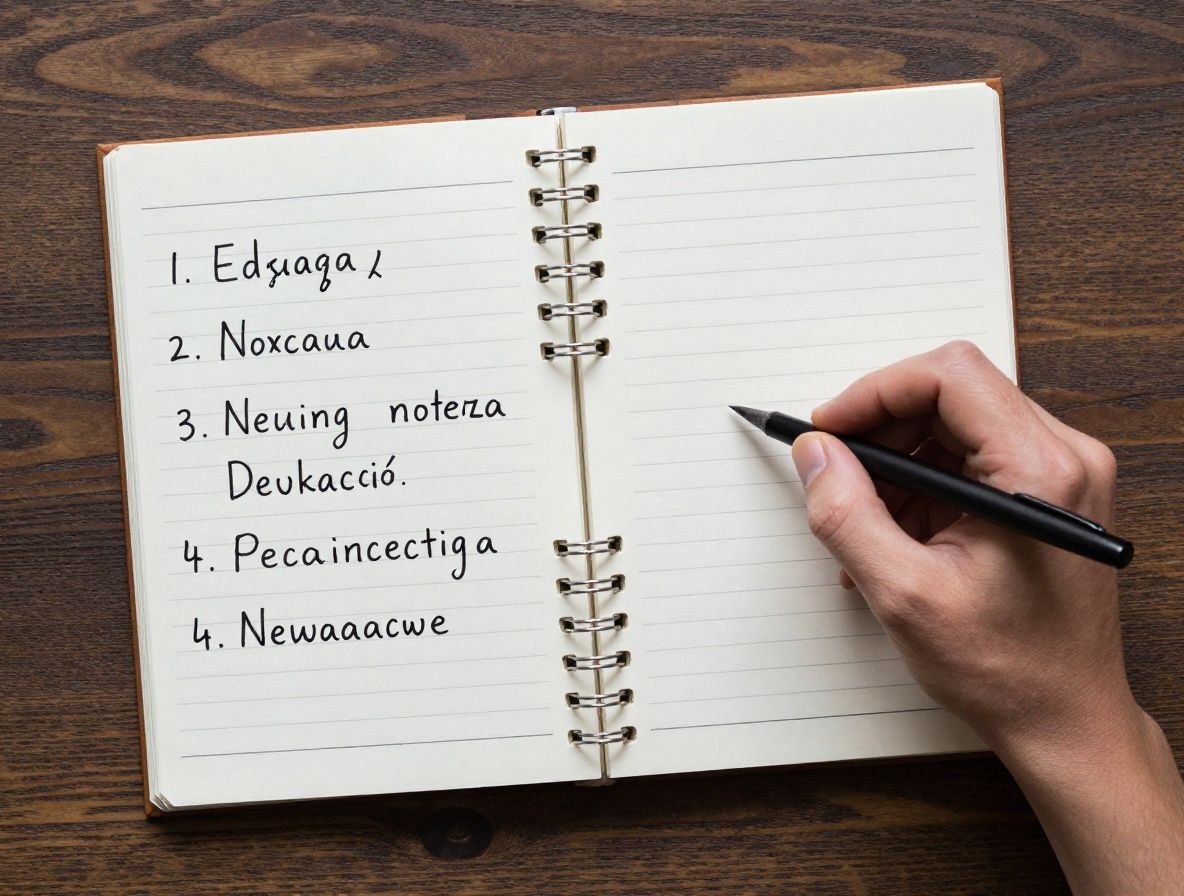 1.
2. Noxcaua
3. Neuing noteza
Deukacció.
4. Pecaincectiga
4. Newaaacwe